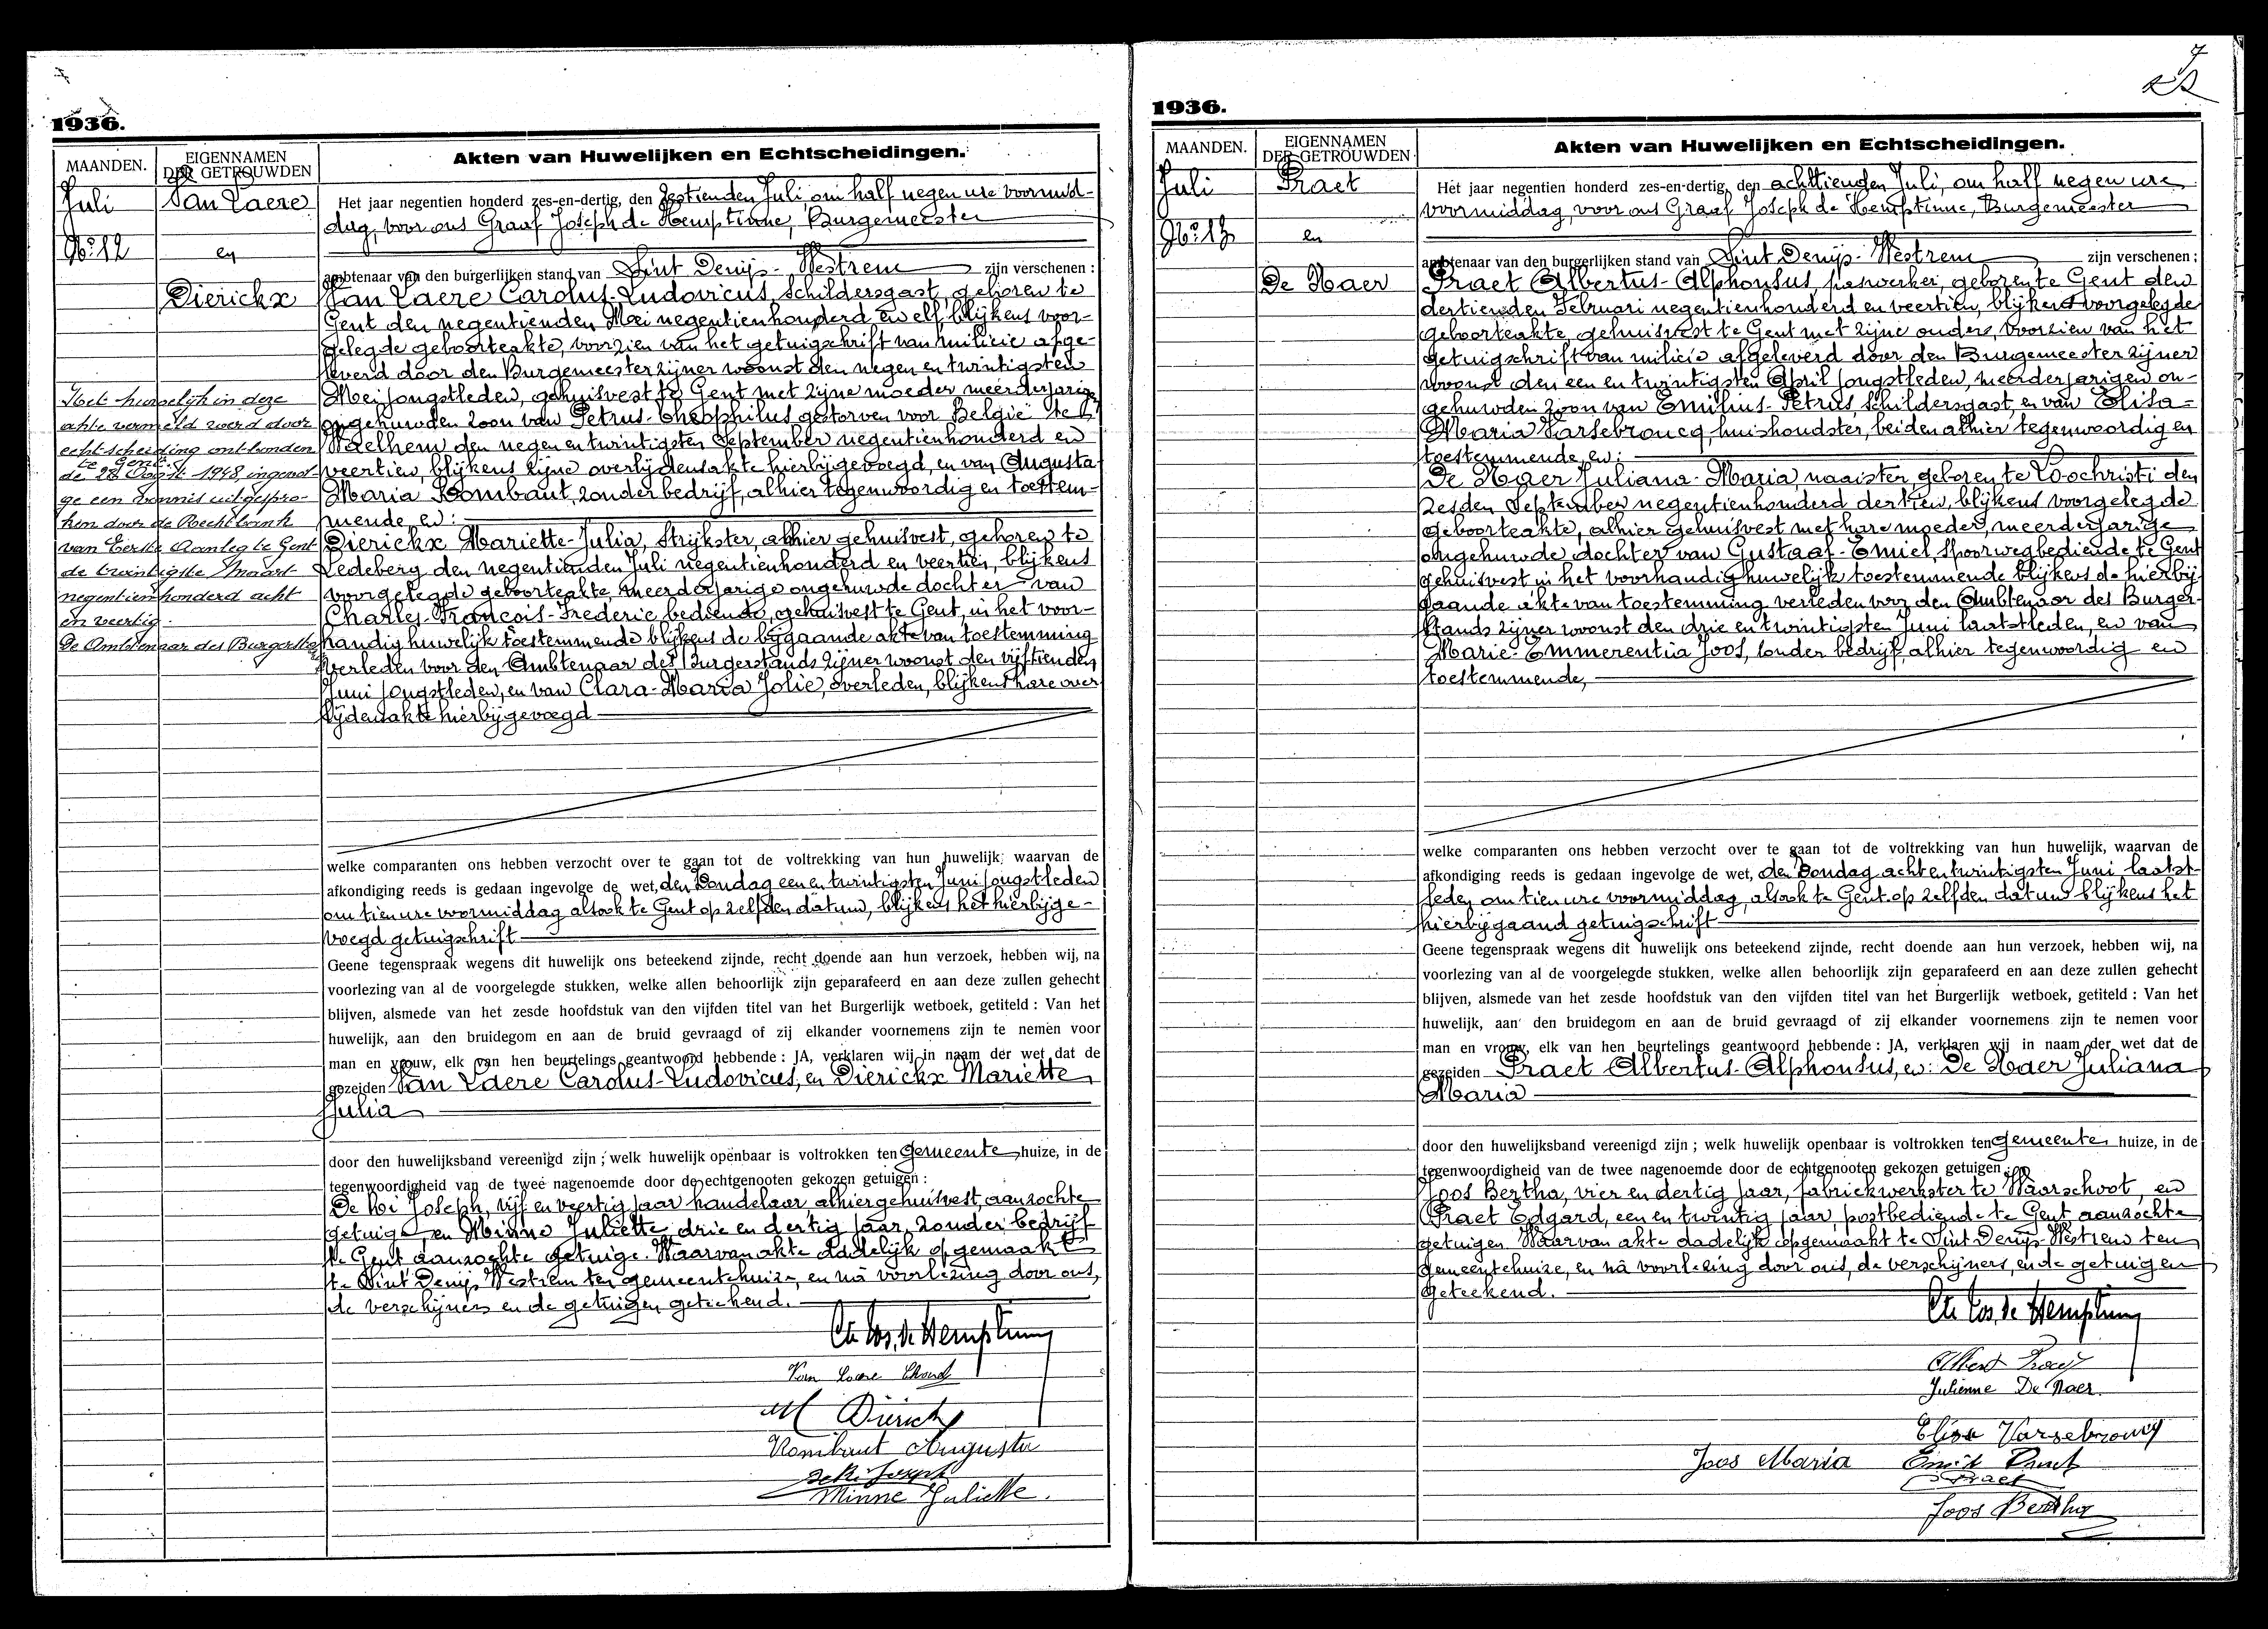 1936.
MAANDEN.
EIGENNAMEN
DER GETROUWDEN
Akten van Huwelijken en Echtscheidingen.
Juli
Van Laere
No. 12
en
Dierickx
Het jaar negentien honderd zes-en-dertig, den zestienden Juli, om half negen ure voormid-
dag, voor ons Graaf Joseph de Hemptinne, Burgemeester
ambtenaar van den burgerlijken stand van Sint Denijs-Westrem zijn verschenen :
Van Laere Carolus-Ludovicus, schildersgast, geboren te
Gent den negentienden Mei negentienhonderd en elf, blijkens voor-
gelegde geboorteakte, voorzien van het getuigschrift van milicie afge-
leverd door den Burgemeester zijner woonst den negen en twintigsten
Mei jongstleden, gehuisvest te Gent met zijne moeder meerderjarige
ongehuwden zoon van Petrus-Theophilus gestorven voor België te
Waelhem den negen en twintigsten September negentienhonderd en
veertien, blijkens zijne overlijdensakte hierbijgevoegd, en van Augusta
Maria Rombaut, zonder bedrijf, alhier tegenwoordig en toestem-
mende, en :
Dierickx Mariette-Julia, strijkster, alhier gehuisvest, geboren te
Ledeberg den negentienden Juli negentienhonderd en veertien, blijkens
voorgelegde geboorteakte, meerderjarige ongehuwde dochter van
Charles-François-Frederic bediende, gehuisvest te Gent, in het voor-
handig huwelijk toestemmende blijkens de bijgaande akte van toestemming
verleden voor den Ambtenaar des Burgerstands zijner woonst den vijftienden
Juni jongstleden, en van Clara-Maria Jolie, overleden, blijkens hare over
lijdensakte hierbijgevoegd
Het huwelijk in deze
akte vermeld werd door
echtscheiding ontbonden
te Gent
de 28 Oogst 1948, ingevol-
ge een vonnis uitgespro-
ken door de Rechtbank
van Eerste Aanleg te Gent
de twintigste Maart
negentien honderd acht
en veertig.
De Ambtenaar des Burgerstands
welke comparanten ons hebben verzocht over te gaan tot de voltrekking van hun huwelijk, waarvan de
afkondiging reeds is gedaan ingevolge de wet, den Zondag een en twintigsten Juni jongstleden
om tien ure voormiddag alsook te Gent op zelfden datum, blijkens het hierbijge-
voegd getuigschrift
Geene tegenspraak wegens dit huwelijk ons beteekend zijnde, recht doende aan hun verzoek, hebben wij, na
voorlezing van al de voorgelegde stukken, welke allen behoorlijk zijn geparafeerd en aan deze zullen gehecht
blijven, alsmede van het zesde hoofdstuk van den vijfden titel van het Burgerlijk wetboek, getiteld : Van het
huwelijk, aan den bruidegom en aan de bruid gevraagd of zij elkander voornemens zijn te nemen voor
man en vrouw, elk van hen beurtelings geantwoord hebbende : JA, verklaren wij in naam der wet dat de
gezeiden Van Laere Carolus-Ludovicus, en Dierickx Mariette
Julia
door den huwelijksband vereenigd zijn ; welk huwelijk openbaar is voltrokken ten gemeente huize, in de
tegenwoordigheid van de twee nagenoemde door de echtgenooten gekozen getuigen :
De Ki Joseph, vijf en veertig jaar handelaar, alhier gehuisvest, aanzochte
getuige, en Minne Juliette drie en dertig jaar, zonder bedrijf
te Gent aanzochte getuige. Waarvan akte dadelijk opgemaakt
te Sint Denijs Westrem ten gemeentehuize, en nà voorlezing door ons,
de verschijners en de getuigen geteekend.
Cte Jos. de Hemptinne
Van Laere
M Dierickx
Rombaut Augusta
De Ki Joseph
Minne Juliette.
7
1936.
MAANDEN.
EIGENNAMEN
DER GETROUWDEN
Akten van Huwelijken en Echtscheidingen.
Juli
Praet
No. 13
en
De Naer
Het jaar negentien honderd zes-en-dertig, den achttienden Juli, om half negen ure
voormiddag, voor ons Graaf Joseph de Hemptinne, Burgemeester
ambtenaar van den burgerlijken stand van Sint Denijs-Westrem zijn verschenen :
Praet Albertus-Alphonsus, paswerker, geboren te Gent den
dertienden Februari negentienhonderd en veertien, blijkens voorgelegde
geboorteakte, gehuisvest te Gent met zijne ouders, voorzien van het
getuigschrift van milicie afgeleverd door den Burgemeester zijner
woonst den een en twintigsten April jongstleden, meerderjarigen on-
gehuwden zoon van Emilius-Petrus, schildersgast, en van Elisa-
Maria Varsebroucq, huishoudster, beiden alhier tegenwoordig en
toestemmende, en :
De Naer Juliana-Maria naaister, geboren te Loochristi den
zesden September negentienhonderd dertien, blijkens voorgelegde
geboorteakte, alhier gehuisvest met hare moeder, meerderjarige
ongehuwde dochter van Gustaaf-Emiel, spoorwegbediende te Gent
gehuisvest in het voorhandig huwelijk toestemmende blijkens de hierbij
gaande akte van toestemming verleden voor den Ambtenaar des Burger-
stands zijner woonst den drie en twintigsten Juni laatstleden, en van
Marie-Emmerentia Joos, zonder bedrijf, alhier tegenwoordig en
toestemmende,
welke comparanten ons hebben verzocht over te gaan tot de voltrekking van hun huwelijk, waarvan de
afkondiging reeds is gedaan ingevolge de wet, den Zondag acht en twintigsten Juni laatst
leden om tien ure voormiddag, alsook te Gent op zelfden datum blijkens het
hierbijgaand getuigschrift
Geene tegenspraak wegens dit huwelijk ons beteekend zijnde, recht doende aan hun verzoek, hebben wij, na
voorlezing van al de voorgelegde stukken, welke allen behoorlijk zijn geparafeerd en aan deze zullen gehecht
blijven, alsmede van het zesde hoofdstuk van den vijfden titel van het Burgerlijk wetboek, getiteld : Van het
huwelijk, aan den bruidegom en aan de bruid gevraagd of zij elkander voornemens zijn te nemen voor
man en vrouw, elk van hen beurtelings geantwoord hebbende : JA, verklaren wij in naam der wet dat de
gezeiden Praet Albertus-Alphonsus, en: De Naer Juliana
Maria
door den huwelijksband vereenigd zijn ; welk huwelijk openbaar is voltrokken ten gemeente huize, in de
tegenwoordigheid van de twee nagenoemde door de echtgenooten gekozen getuigen :
Joos Bertha, vier en dertig jaar, fabriekwerkster te Waarschoot, en
Praet Edgard, een en twintig jaar, postbediende te Gent aanzochte
getuigen. Waarvan akte dadelijk opgemaakt te Sint Denijs-Westrem ten
gemeentehuize, en nà voorlezing door ons, de verschijners, en de getuigen
geteekend.
Cte Jos. de Hemptinne
Albert Praet
Julienne De Naer.
Elisa Varsebroucq
Joos Maria
Emiel Praet
Praet
Joos Bertha